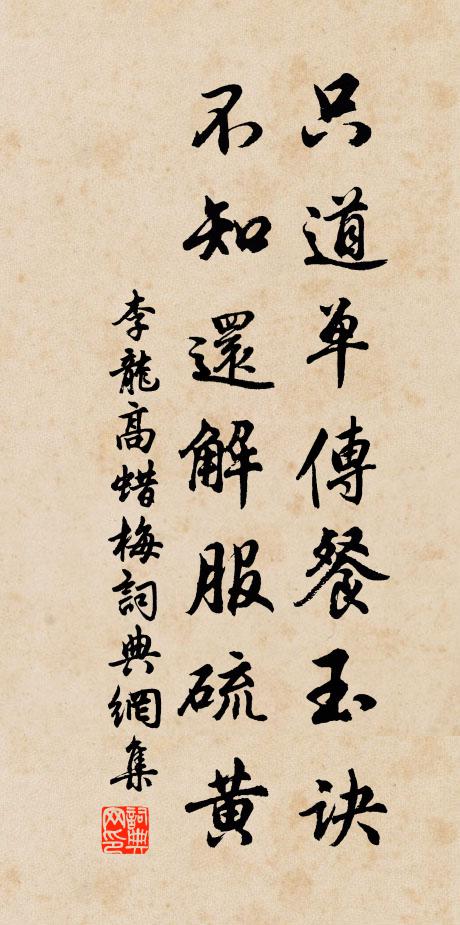 只道单傳餐玉訣
不知還解服硫黄
李龍高蜡梅詞典網集
詞典網印